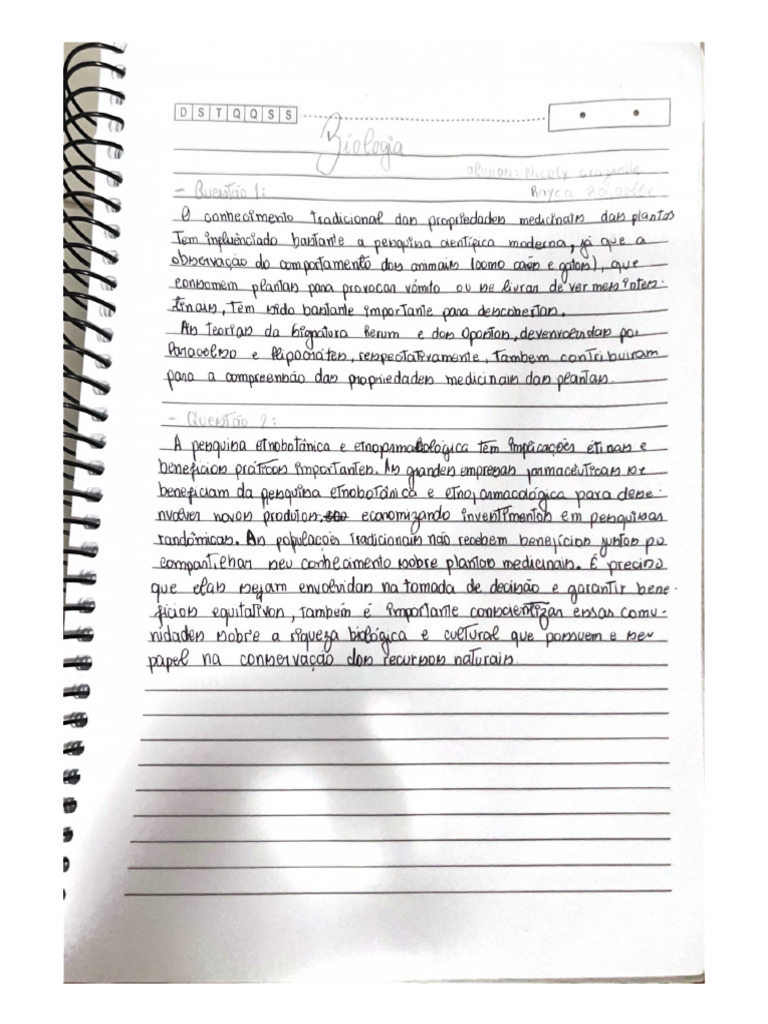 D S T Q Q S S
Biologia
alunas: Nicoly
Rayca
- Questão 1:
O conhecimento tradicional das propriedades medicinais das plantas
Tem influênciado bastante a pesquisa científica moderna, já que a
observação do comportamento dos animais (como cães e gatos), que
consomem plantas para provocar vômito ou se livrar de vermes intes-
tinais, tem sido bastante importante para descobertas.
As teorias da Signatura Rerum e dos Opostos, desenvolvidas por
Paracelso e Hipócrates, respectativamente, também contribuiram
para a compreensão das propriedades medicinais das plantas.
- Questão 2:
A pesquisa etnobotânica e etnofarmacológica têm implicações éticas e
benefícios práticos importantes. As grandes empresas farmacêuticas se
beneficiam da pesquisa etnobotânica e etnofarmacológica para dese-
nvolver novos produtos, economizando investimentos em pesquisas
randômicas. As populações tradicionais não recebem benefícios justos po
compartilhar seu conhecimento sobre plantas medicinais. É preciso
que elas sejam envolvidas na tomada de decisão e garantir bene-
fícios equitativos, também é importante conscientizar essas comu-
nidades sobre a riqueza biológica e cultural que possuem e seu
papel na conservação dos recursos naturais.